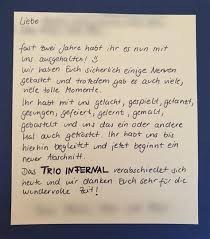 Liebe
fast zwei Jahre habt ihr es nun mit
uns ausgehalten! ☺
Wir haben Euch sicherlich einige Nerven
gekostet und trotzdem gab es auch viele,
viele tolle Momente.
Ihr habt mit uns gelacht, gespielt, getanzt,
gesungen, gefeiert, gelernt, gemalt,
gebastelt und uns das ein oder andere
Mal auch getröstet. Ihr habt uns bis
hierhin begleitet und jetzt beginnt ein
neuer Abschnitt.
Das TRIO INFERNAL verabschiedet sich
heute und wir danken Euch sehr für die
wundervolle Zeit!